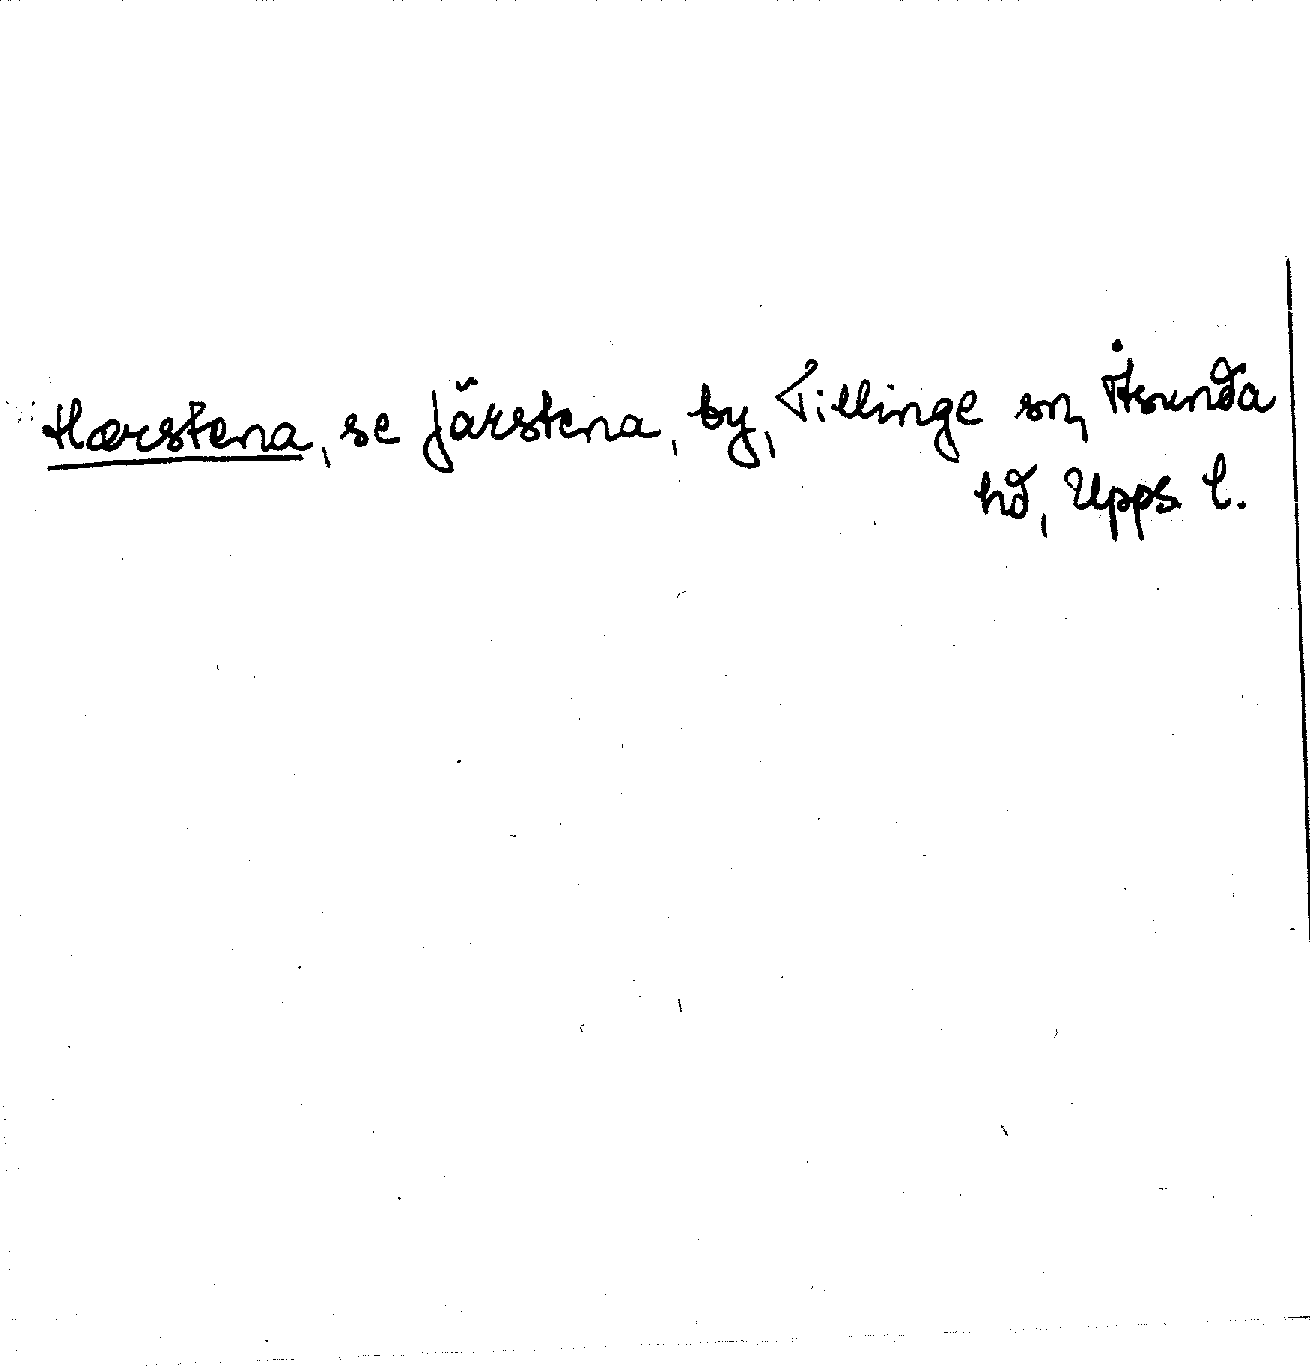 Hærstena, se Järstena, by, Tillinge sn, Åsunda
hd, Upps l.